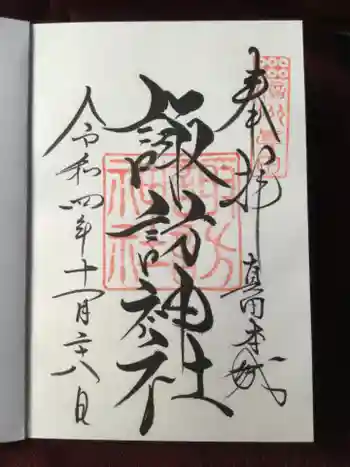 奉拝
真田本城
諏訪神社
諏訪神社
令和四年十一月二十八日